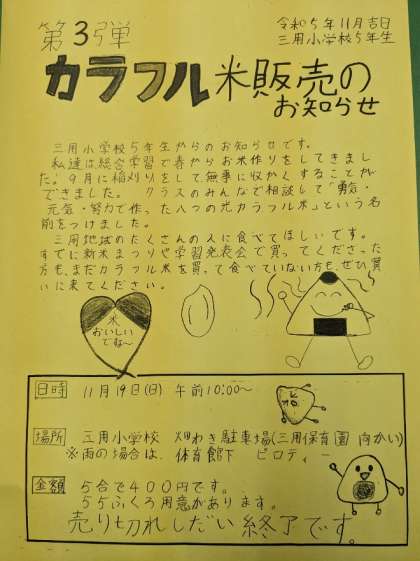 第3弾
令和5年11月吉日
三用小学校5年生
カラフル米販売の
お知らせ
三用小学校5年生からのお知らせです。
私達は総合学習で春からお米作りをしてきまし
た!9月に稲刈りをして、無事に収かくすることが
できました。クラスのみんなで相談して「勇気・
元気・努力で作った八つの光カラフル米」という名
前をつけました。
三用地域のたくさんの人に食べてほしいです。
すでに新米まつりや学習発表会で買ってくださった
方も、まだカラフル米を買って食べていない方も、ぜひ買
いに来てください。
米
おいしい
でな〜
日時 11月19日(日) 午前10:00〜
場所 三用小学校 畑わき駐車場(三用保育園 向かい)
※雨の場合は、体育館下 ピロティー
金額 5合で400円です。
55ふくろ用意があります。
売り切れしだい終了です。